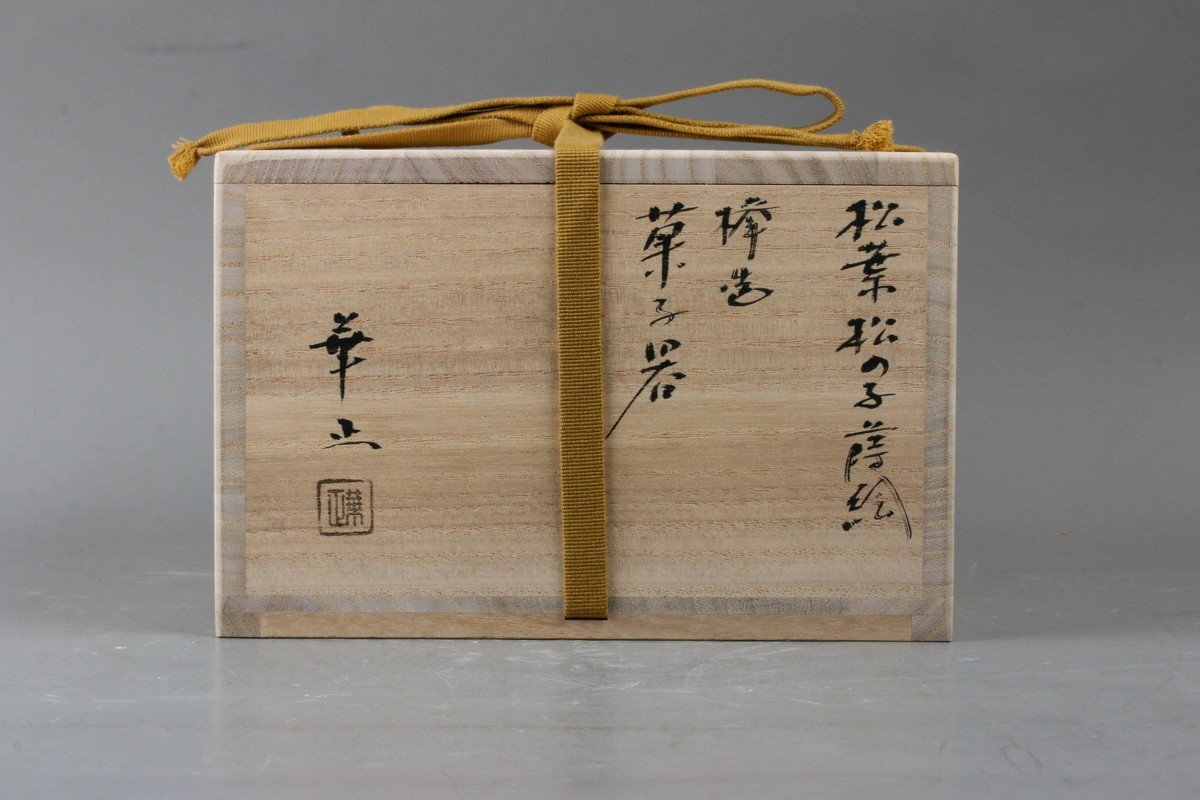 松葉松の子蒔絵
欅造
菓子器
華正
華正